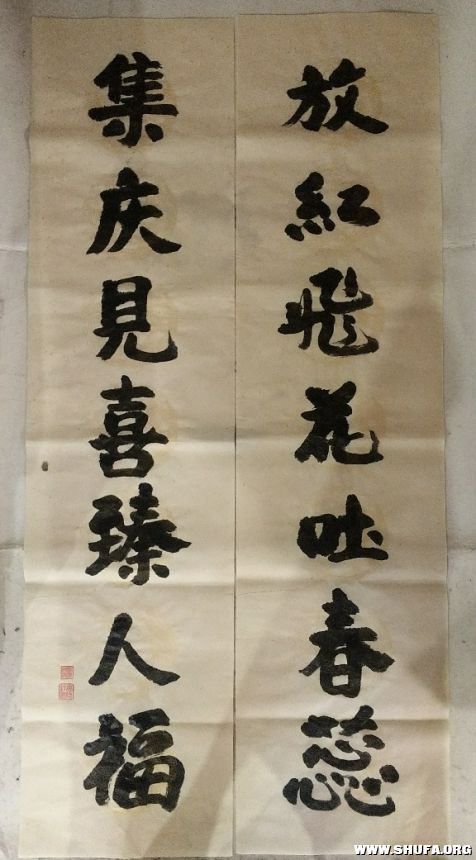 放紅飛花吐春蕊
集庆見喜臻人福
WWW.SHUFA.ORG